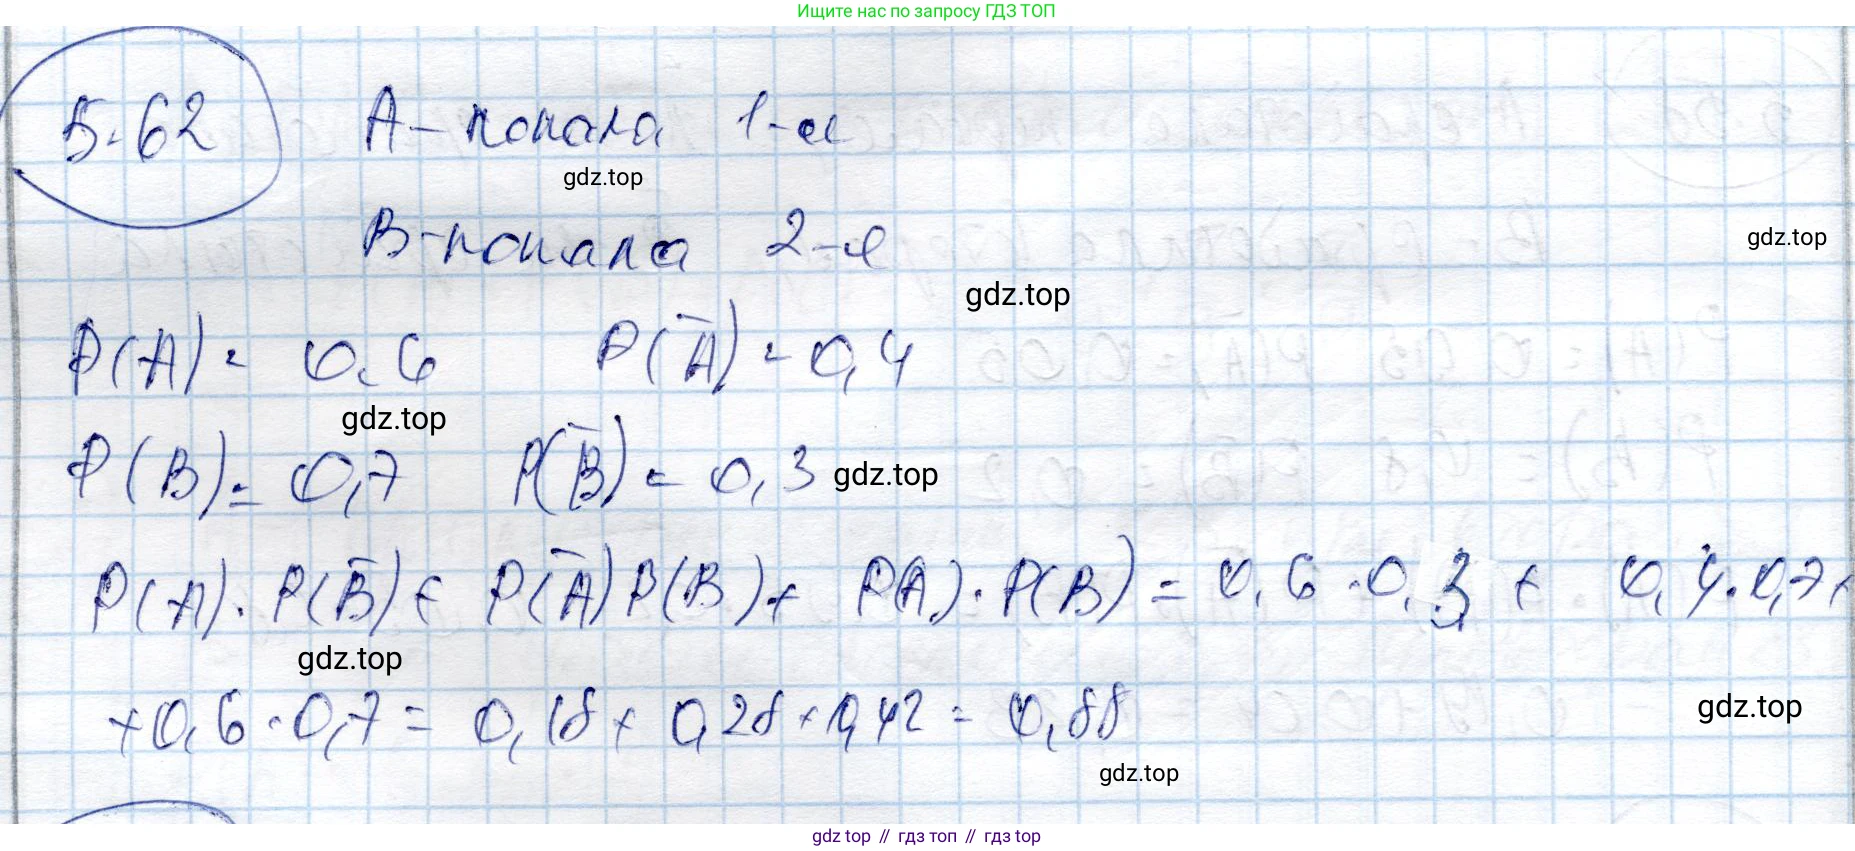 Ищите нас по запросу ГДЗ ТОП
5.62 A - попала 1-я
gdz.top
B - попала 2-я
gdz.top
gdz.top
P(A) = 0,6 P(A̅) = 0,4
gdz.top
P(B) = 0,7 P(B̅) = 0,3 gdz.top
P(A) · P(B̅) + P(A̅) P(B) + P(A) · P(B) = 0,6 · 0,3 + 0,4 · 0,7 +
gdz.top
+ 0,6 · 0,7 = 0,18 + 0,28 + 0,42 = 0,88
gdz.top
gdz.top
gdz top // гдз топ // гдз top